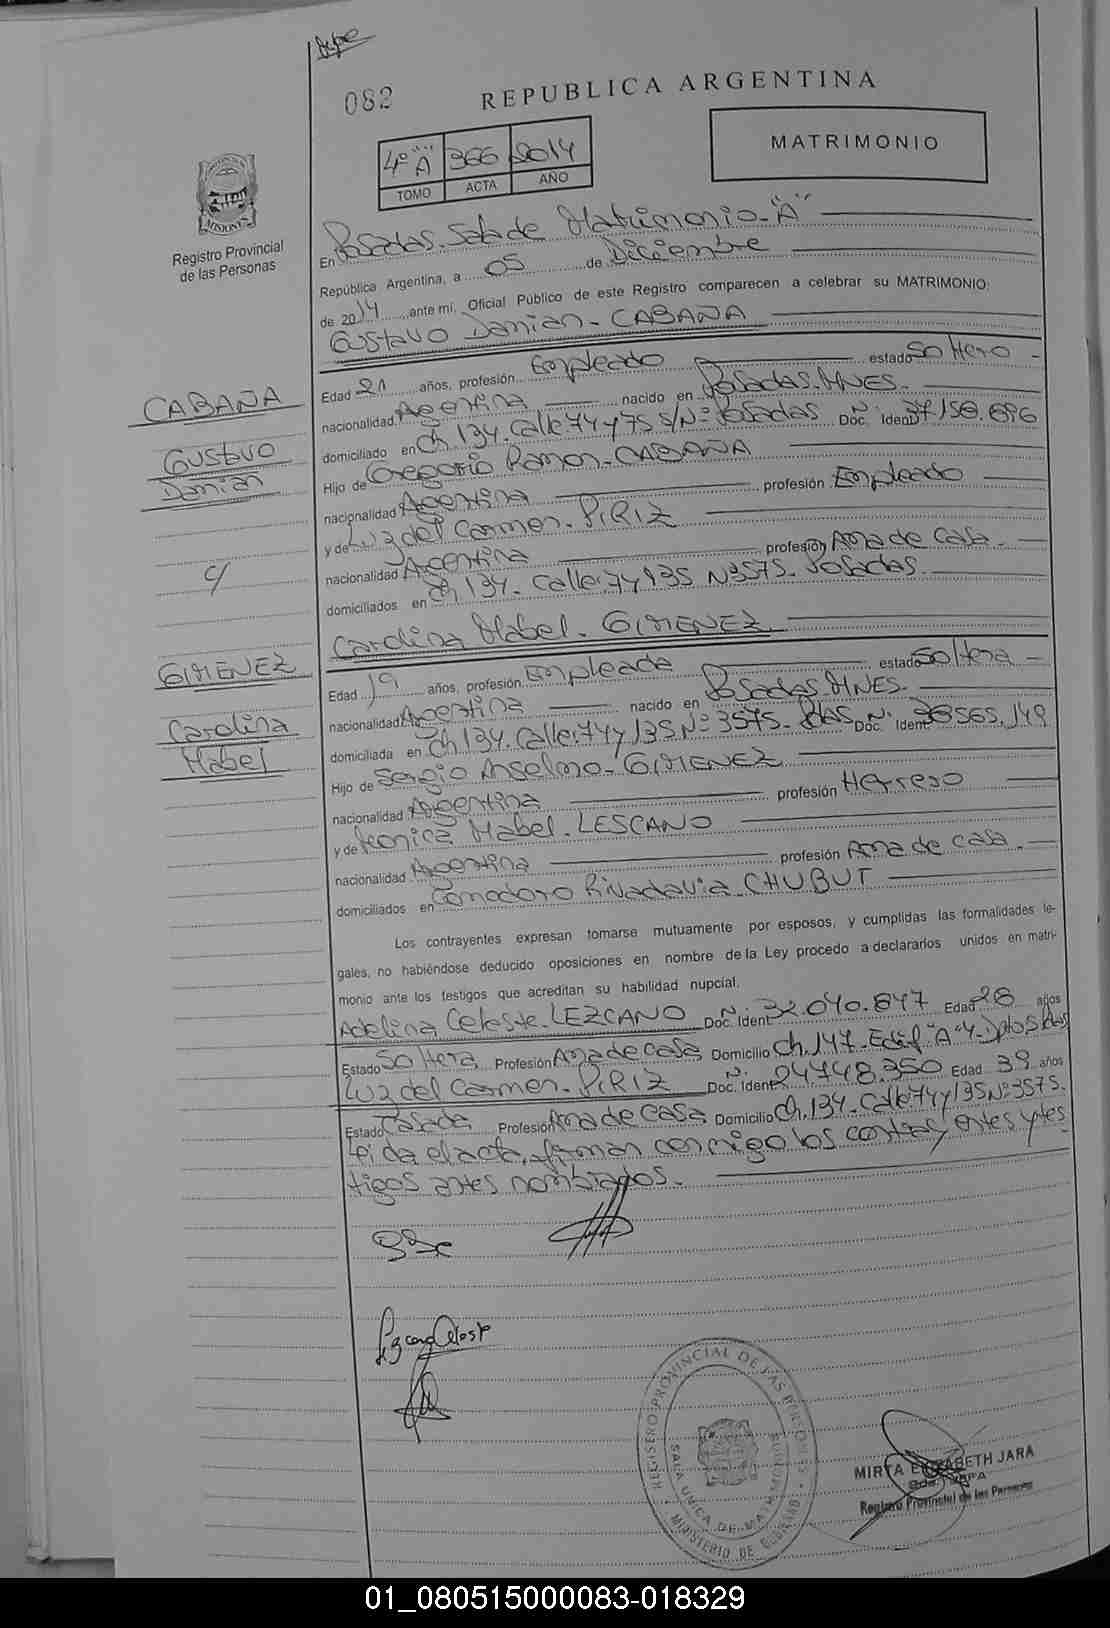 082
REPUBLICA ARGENTINA
4º "A" 366 2014
TOMO ACTA AÑO
MATRIMONIO
Registro Provincial
de las Personas
En Posadas. Sala de Matrimonio "A"
República Argentina, a 05 de Diciembre
de 2014 ante mí, Oficial Público de este Registro comparecen a celebrar su MATRIMONIO:
Gustavo Damian - CABAÑA
Edad 21 años, profesión Empleado estado Soltero
nacionalidad Argentina nacido en Posadas. MNES.
domiciliado en Ch. 134. Calle 74 y 75 S/Nº Posadas Doc. Ident. Nº 37.158.696
Hijo de Gregorio Ramon - CABAÑA
nacionalidad Argentina profesión Empleado
y de Luz del Carmen - PIRIZ
nacionalidad Argentina profesión Ama de Casa.
domiciliados en Ch. 134. Calle: 74 y 135 Nº 3575. Posadas.
CABAÑA
Gustavo
Damian
c/
GIMENEZ
Carolina
Mabel
Carolina Mabel. GIMENEZ
Edad 19 años, profesión Empleada estado Soltera
nacionalidad Argentina nacido en Posadas. MNES.
domiciliada en Ch. 134. Calle: 74 y 135. Nº 3575. Pdas Doc. Ident. Nº 38.565.149
Hijo de Sergio Anselmo - GIMENEZ
nacionalidad Argentina profesión Herrero
y de Monica Mabel. LESCANO
nacionalidad Argentina profesión Ama de casa.
domiciliados en Comodoro Rivadavia CHUBUT
Los contrayentes expresan tomarse mutuamente por esposos, y cumplidas las formalidades le-
gales, no habiéndose deducido oposiciones en nombre de la Ley procedo a declararlos unidos en matri-
monio ante los testigos que acreditan su habilidad nupcial.
Adelina Celeste. LEZCANO Doc. Ident. Nº 32.040.847 Edad 28 años
Estado Soltera Profesión Ama de casa Domicilio Ch. 147. Edif "A" 4. Dpto 5 Pdas
Luz del Carmen - PIRIZ Doc. Ident. Nº 24.748.350 Edad 39 años
Estado Casada Profesión Ama de casa Domicilio Ch. 134. Calle 74 y 135 Nº 3575.
Leida el acta, firman conmigo los contrayentes y tes
tigos antes nombrados.
Lezcano Celeste
REGISTRO PROVINCIAL DE LAS PERSONAS
SALA UNICA DE MATRIMONIOS
MINISTERIO DE GOBIERNO
MIRTA ELIZABETH JARA
Registro Provincial de las Personas
01_080515000083-018329